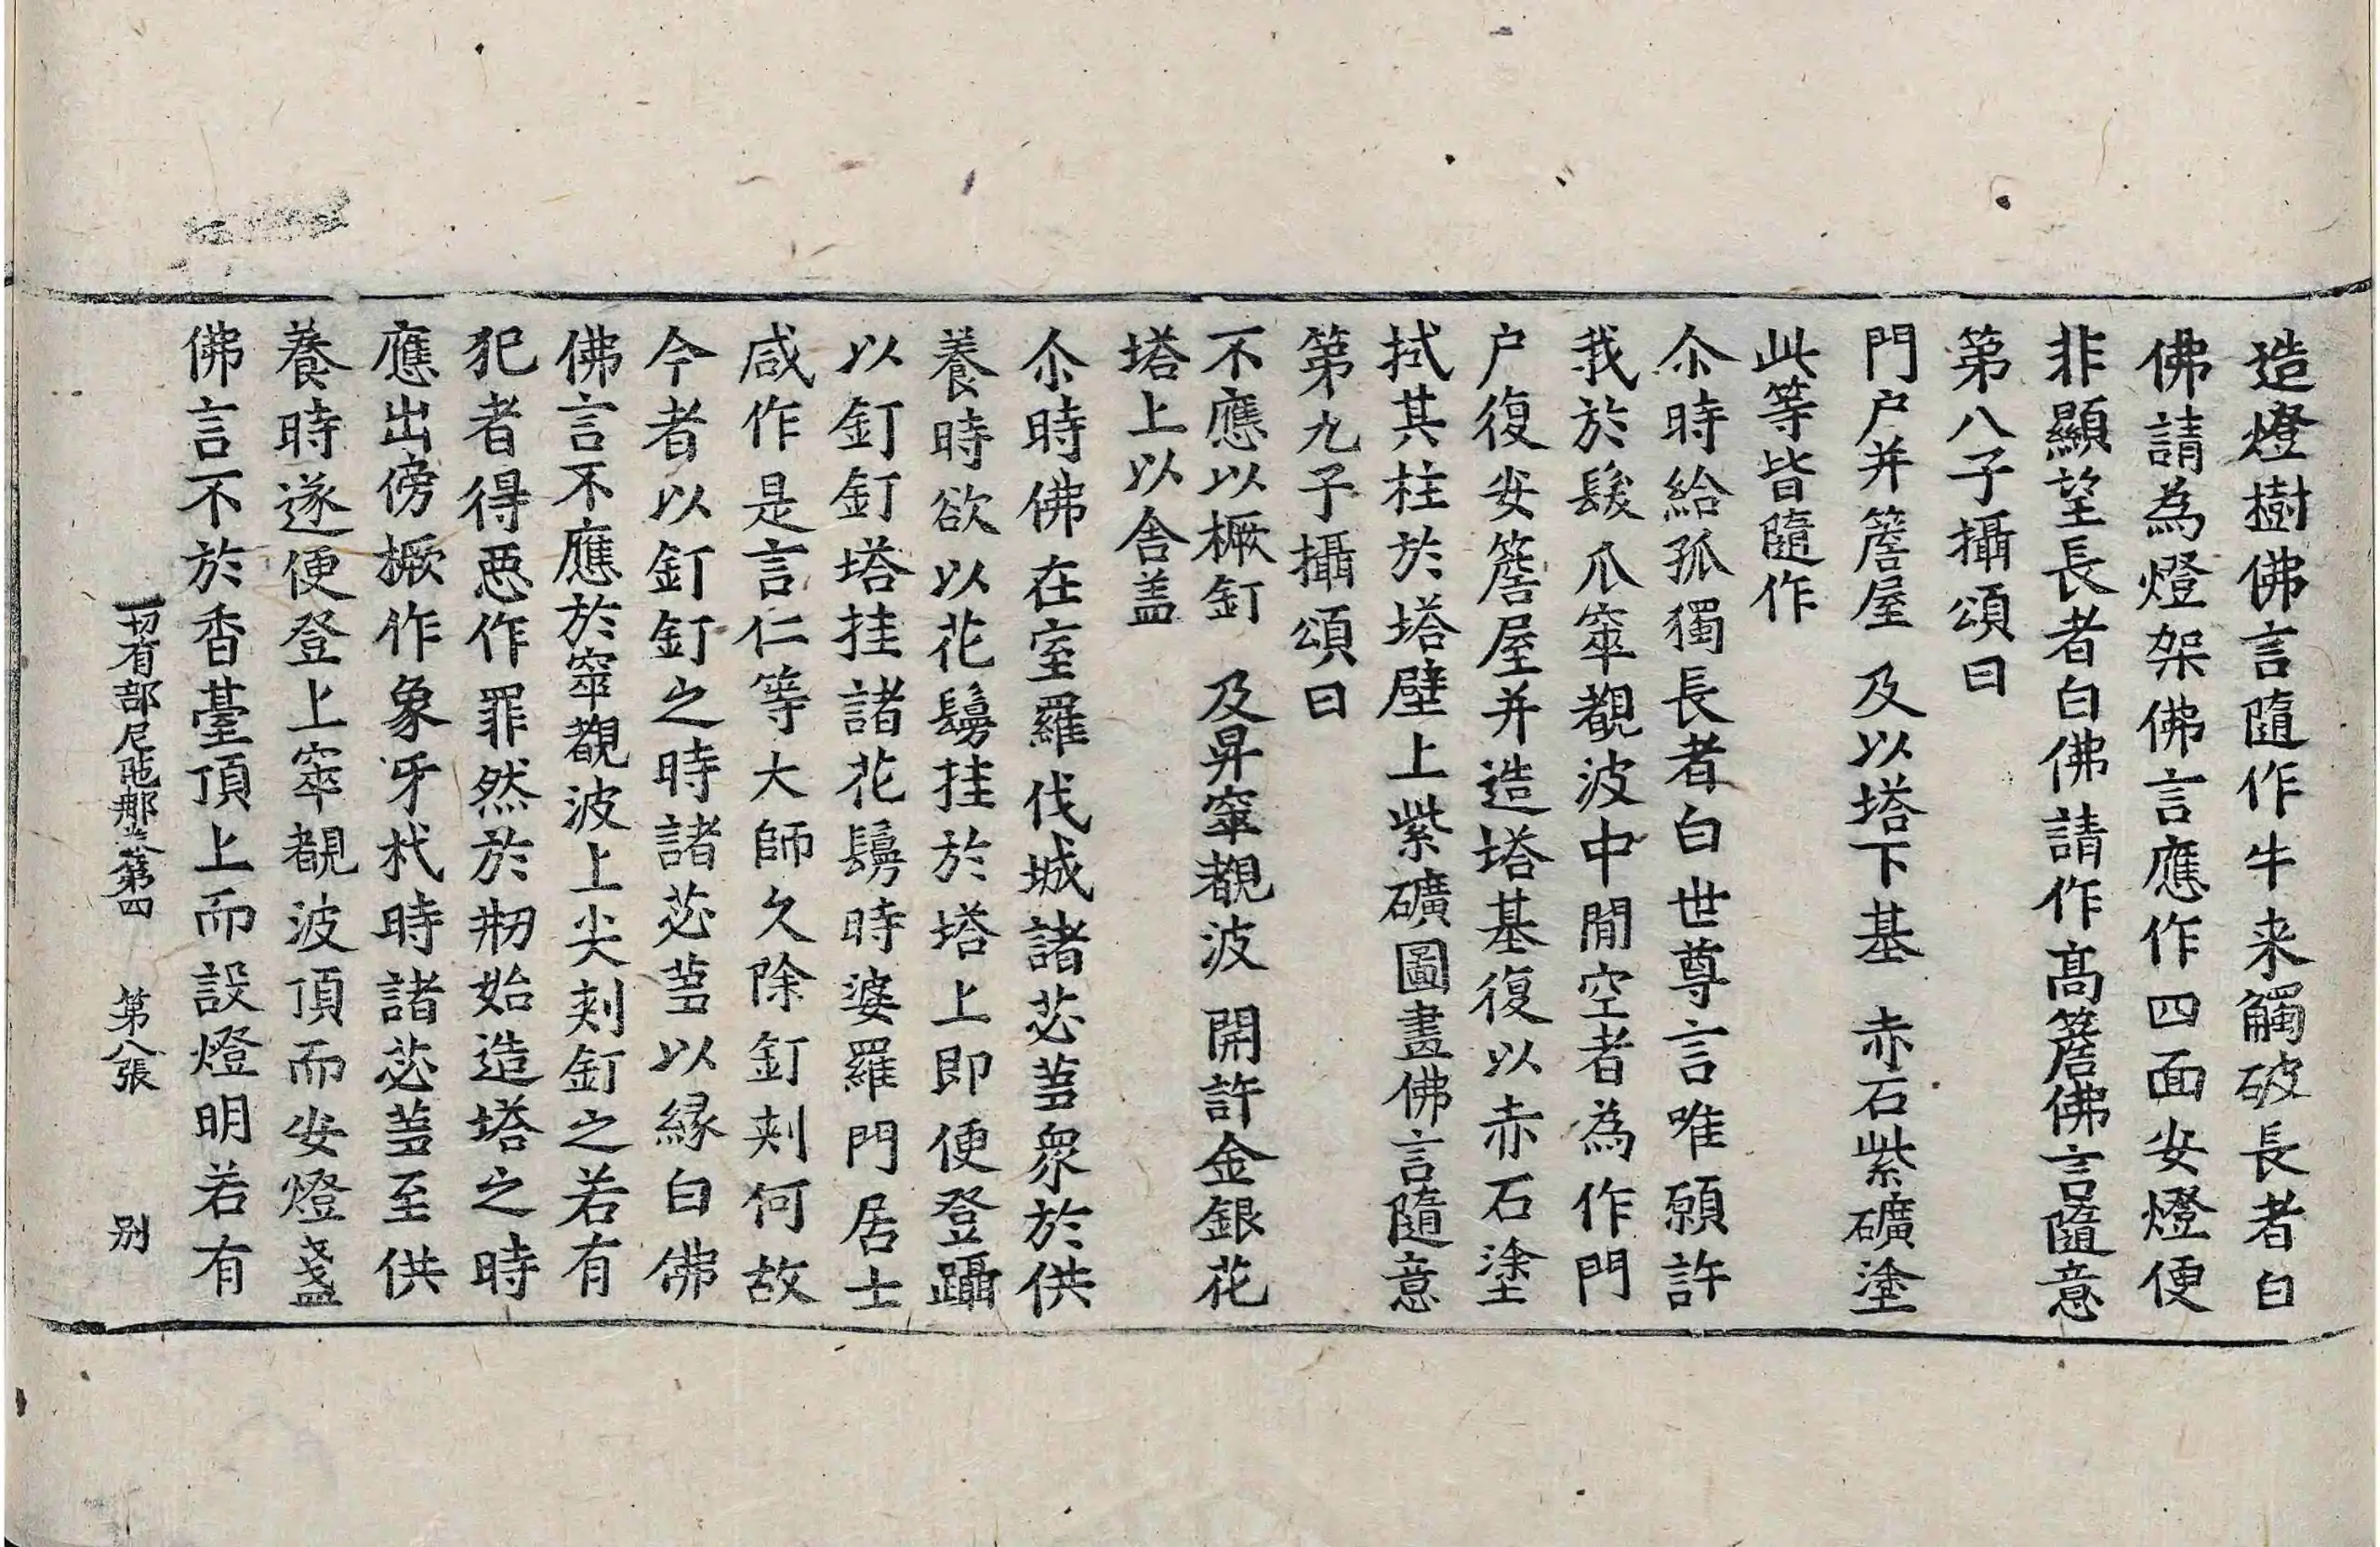 造燈樹佛言隨作牛来觸破長者白
佛請為燈架佛言應作四面安燈便
非顯望長者白佛請作髙簷佛言隨意
第八子攝頌曰
門户并簷屋　及以塔下基　赤石紫礦塗
此等皆隨作
尒時給孤獨長者白世尊言唯願許
我於髮爪窣覩波中閒空者為作門
户復安簷屋并造塔基復以赤石塗
拭其柱於塔壁上紫礦圖畫佛言隨意
第九子攝頌曰
不應以橛釘　及昇窣覩波　開許金銀花
塔上以舍盖
尒時佛在室羅伐城諸苾蒭衆於供
養時欲以花鬘挂於塔上即便登躡
以釘釘塔挂諸花鬘時婆羅門居士
咸作是言仁等大師久除釘刾何故
今者以釘釘之時諸苾蒭以緣白佛
佛言不應於窣覩波上尖刾釘之若有
犯者得惡作罪然於刱始造塔之時
應出傍橛作象牙杙時諸苾蒭至供
養時遂便登上窣覩波頂而安燈盞
佛言不於香臺頂上而設燈明若有
一切有部尼陁那卷第四　第八張　别